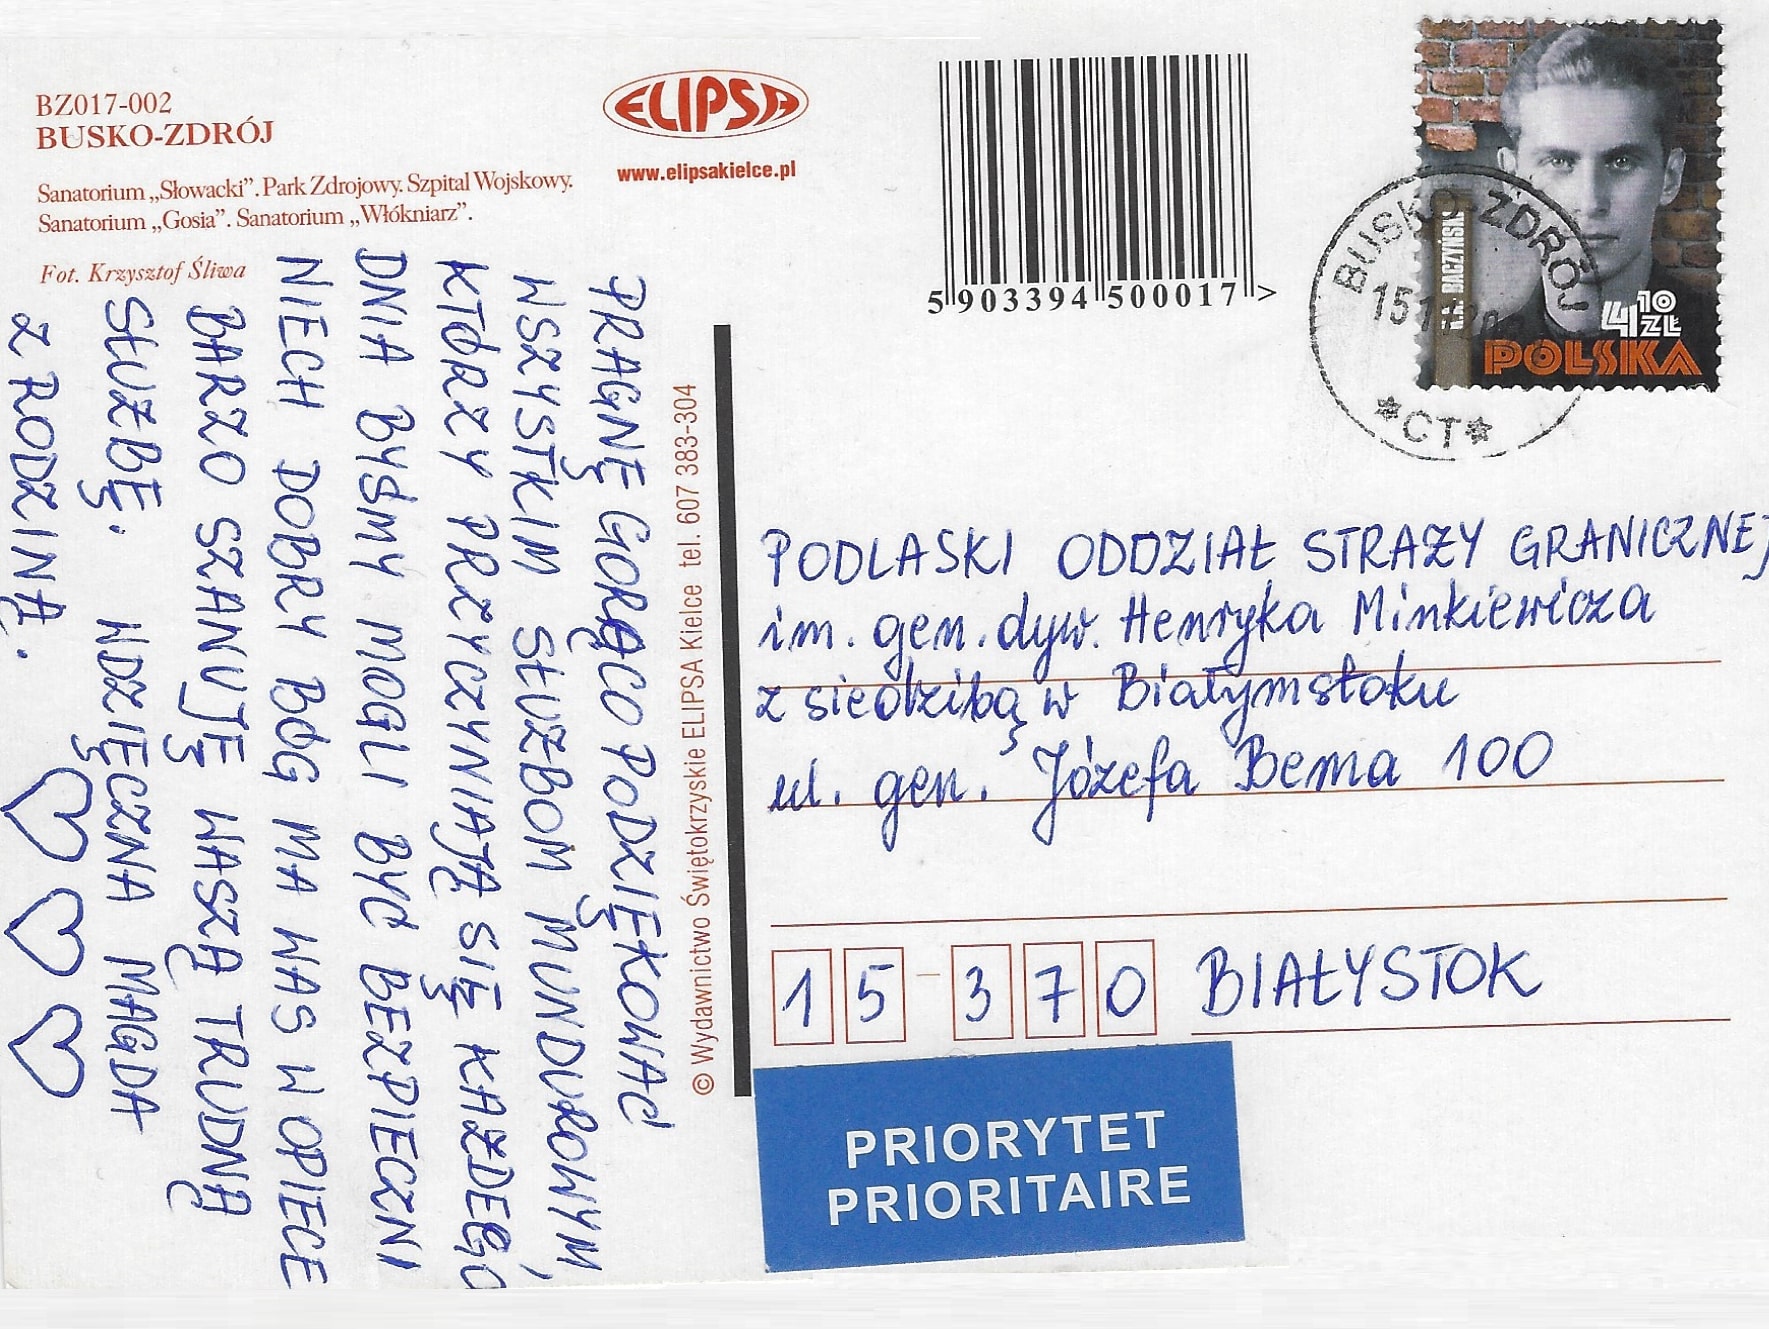 BZ017-002
BUSKO-ZDRÓJ
Sanatorium „Słowacki”. Park Zdrojowy. Szpital Wojskowy.
Sanatorium „Gosia”. Sanatorium „Włókniarz”.
Fot. Krzysztof Śliwa
ELIPSA
www.elipsakielce.pl
5 903394 500017 >
K.K. BACZYŃSKI
4 10 ZŁ
POLSKA
BUSKO-ZDRÓJ
*CT*
PRAGNĘ GORĄCO PODZIĘKOWAĆ
WSZYSTKIM SŁUŻBOM MUNDUROWYM,
KTÓRZY PRZYCZYNIAJĄ SIĘ KAŻDEGO
DNIA BYŚMY MOGLI BYĆ BEZPIECZNI
NIECH DOBRY BÓG MA WAS W OPIECE
BARZO SZANUJĘ WASZĄ TRUDNĄ
SŁUŻBĘ. WDZIĘCZNA MAGDA
Z RODZINĄ.
© Wydawnictwo Świętokrzyskie ELIPSA Kielce tel. 607 383-304
PODLASKI ODDZIAŁ STRAŻY GRANICZNEJ
im. gen. dyw. Henryka Minkiewicza
z siedzibą w Białymstoku
ul. gen. Józefa Bema 100
15-370 BIAŁYSTOK
PRIORYTET
PRIORITAIRE